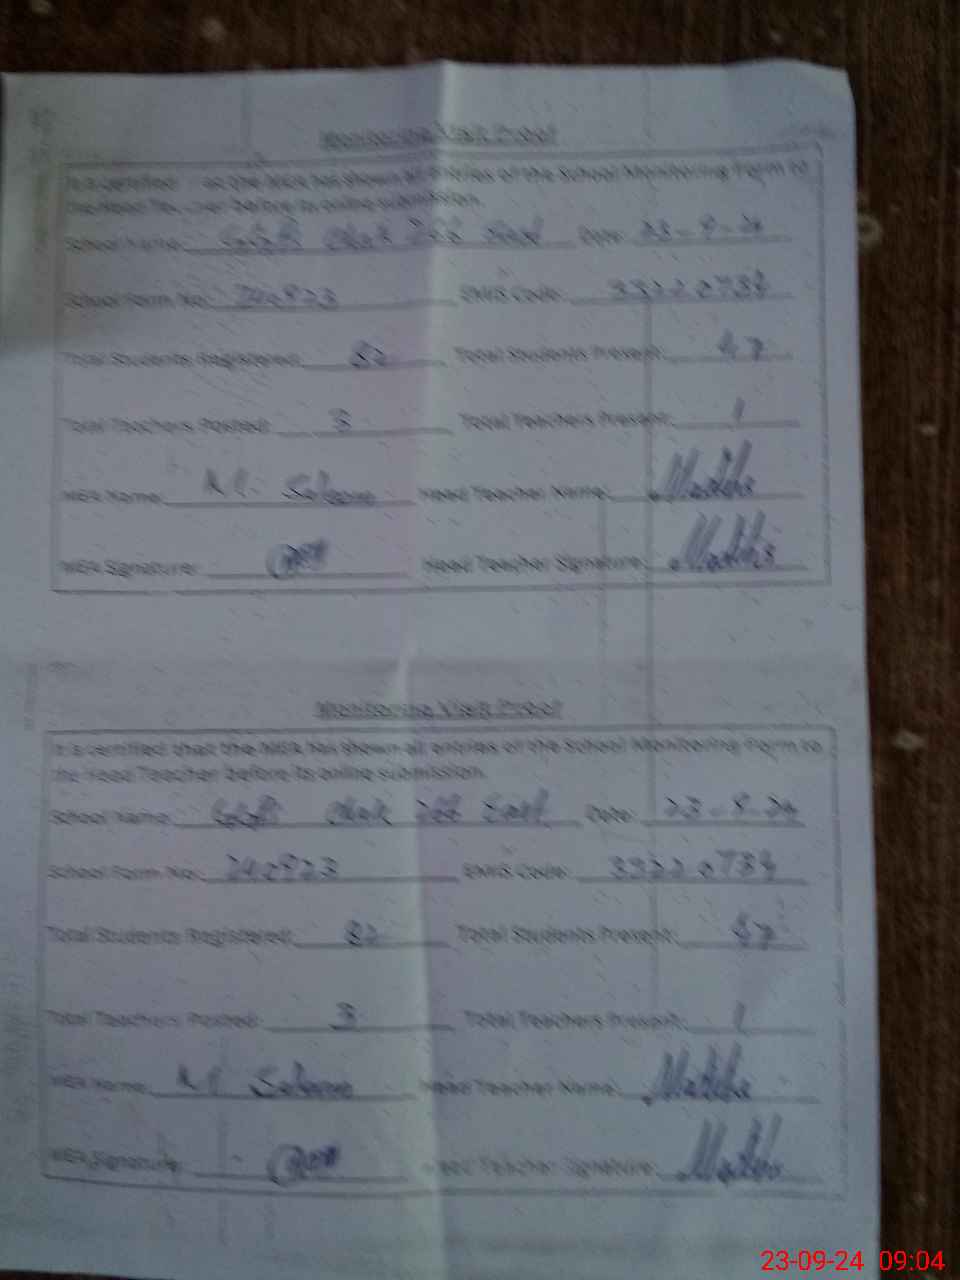 Monitoring Visit Proof
It is certified the MEA has shown all entries of the School Monitoring Form to
the Head Teacher before its online submission.
School Name: Chak East Date: 23-9-24
School Form No: 240923 EMIS Code:
Total Students Registered: 82 Total Students Present: 47
Total Teachers Posted: 3 Total Teachers Present: 1
MEA Name: M. Saleem Head Teacher Name: Madiha
MEA Signature: Head Teacher Signature: Madiha
Monitoring Visit Proof
It is certified that the MEA has shown all entries of the School Monitoring Form to
the Head Teacher before its online submission.
School Name: Chak East Date: 23-9-24
School Form No: 240923 EMIS Code:
Total Students Registered: 82 Total Students Present: 47
Total Teachers Posted: 3 Total Teachers Present: 1
MEA Name: M. Saleem Head Teacher Name: Madiha
MEA Signature: Head Teacher Signature: Madiha
23-09-24 09:04